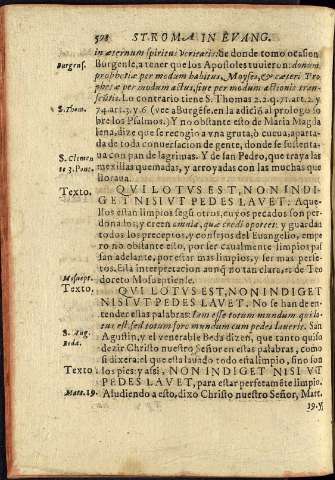 598 STROMA. IN EVANG.
in æternum spiritus veritatis: de donde tomo ocasion
Burgens. Burgense, a tener que los Apostoles tuuieron: donum
prophetiæ per modum habitus. Moyses, & cæteri Pro
phetæ per modum actus, siue per modum actionis trans-
S. Thom. eūtis. Lo contrario tiene S. Thomas 2.2. q. 71. art. 2. y
74. art. 5. y 6 (vee a Burgēse. en la adiciō al prologo so
bre los Psalmos.) Y no obstante esto de Maria Magda
lena, dize que se recogio a vna gruta, ò cueua, aparta-
da de toda conuersacion de gente, donde se sustenta-
S. Clemen ua con pan de lagrimas. Y de san Pedro, que traya las
te 3. Pauc. mexillas quemadas, y arroyadas con las muchas que
lloraua.
Texto. QVI LOTVS EST, NON INDI-
GET NISI VT PEDES LAVET: Aque-
llos estan limpios segū otros, cuyos pecados son per-
donados; y creen omnia, quæ credi oportet: y guardan
todos los preceptos, y consejos del Euangelio, empe
ro no obstante esto, por ser caualmente limpios pas
san adelante, por estar mas limpios, y ser mas perfe-
tos. Esta interpretacion aunq̄ no tan clara, es de Teo
Mosuept. doreto Mosuentiense.
Texto. QVI LOTVS EST, NON INDIGET
NISI VT PEDES LAVET. No se han de en-
tender estas palabras: Iam esse totum mundum qui lo-
tus est, sed totum fore mundum cum pedes lauerit. San
S. Aug. Agustin, y el venerable Beda dizen, que tanto quiso
Beda. dezir Christo nuestro Señor en estas palabras, como
si dixera: el que esta lauado todo esta limpio, sino son
Texto. los pies: y assi, NON INDIGET NISI VT
PEDES LAVET, para estar perfetamēte limpio.
Matt. 19. Aludiendo a esto, dixo Christo nuestro Señor, Matt.
19. y